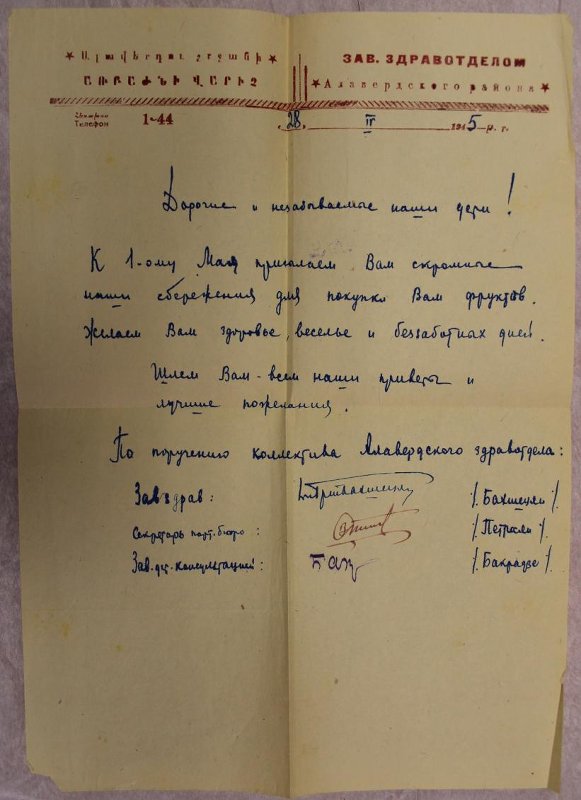 ★ Ալավերդու շրջանի
ԱՌԲԱԺՆԻ ՎԱՐԻՉ
ЗАВ. ЗДРАВОТДЕЛОМ
★ Алавердского района ★
Телефон 1-44
"28" IV 1945 г.
Дорогие и незабываемые наши дети!
К 1-ому Мая присылаем Вам скромные
наши сбережения для покупки Вам фруктов.
Желаем Вам здоровье, веселье и беззаботных дней.
Шлем Вам - всем наши приветы и
лучшие пожелания.
По поручению коллектива Алавердского здравотдела:
Завздрав: /Бахшеили/.
Секретарь парт.бюро: /Петросян/.
Зав.дет.консультацией: /Бакрадзе/.